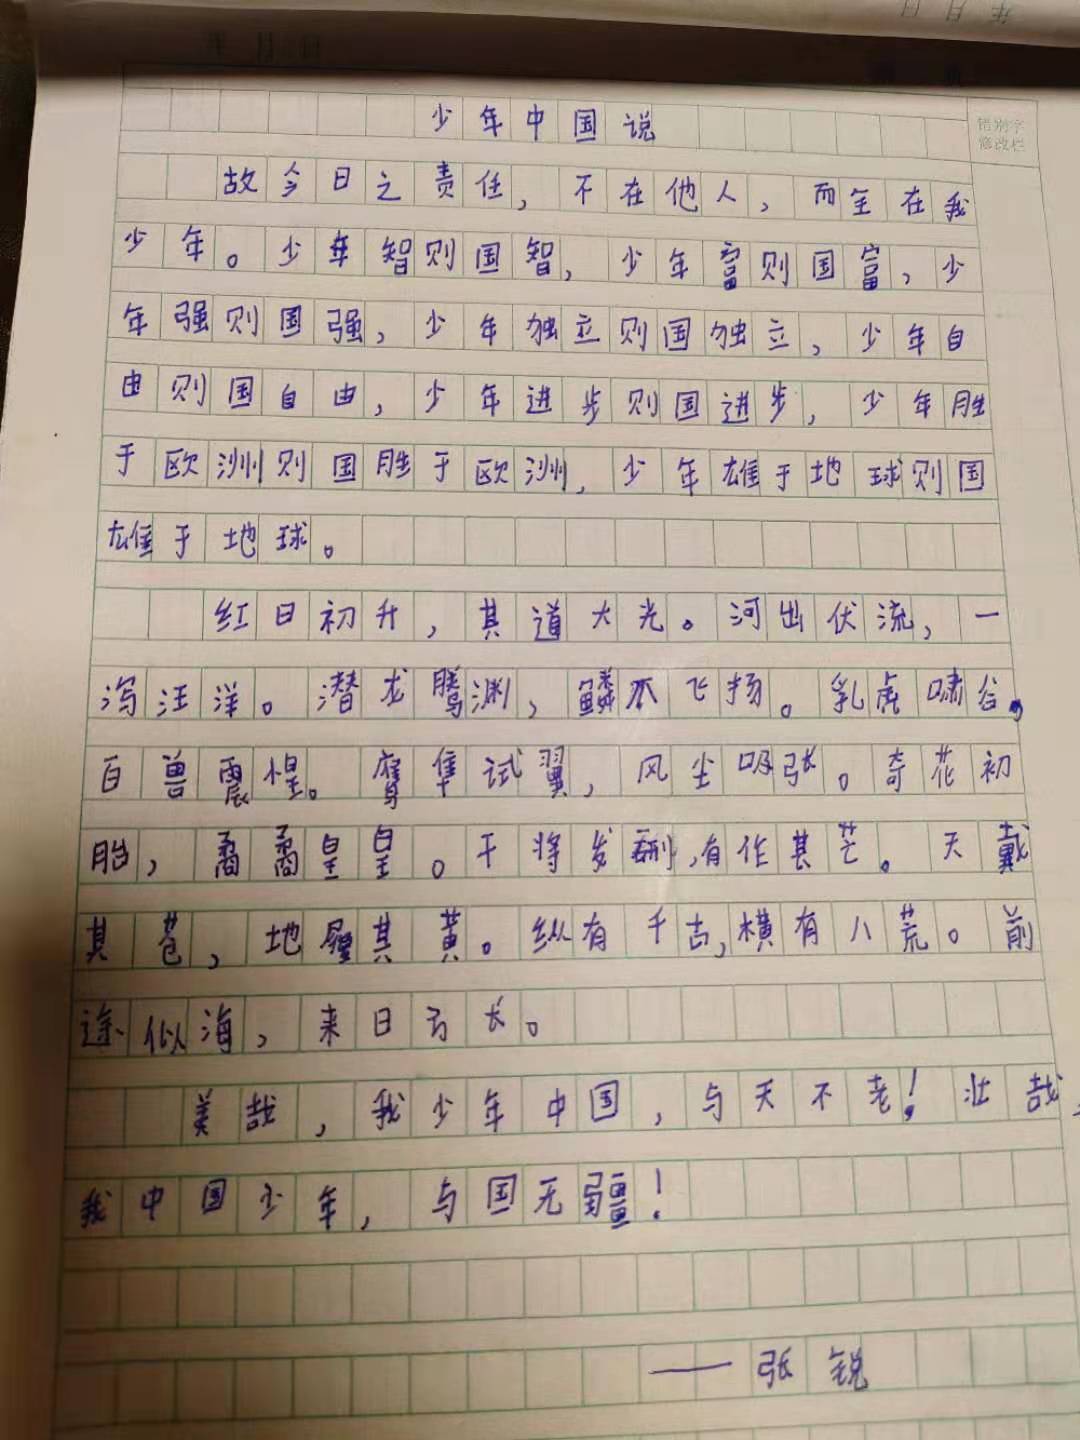 年 月 日
少年中国说
错别字
修改栏
故今日之责任，不在他人，而全在我
少年。少年智则国智，少年富则国富，少
年强则国强，少年独立则国独立，少年自
由则国自由，少年进步则国进步，少年胜
于欧洲则国胜于欧洲，少年雄于地球则国
雄于地球。
红日初升，其道大光。河出伏流，一
泻汪洋。潜龙腾渊，鳞爪飞扬。乳虎啸谷，
百兽震惶。鹰隼试翼，风尘吸张。奇花初
胎，矞矞皇皇。干将发硎，有作其芒。天戴
其苍，地履其黄。纵有千古，横有八荒。前
途似海，来日方长。
美哉，我少年中国，与天不老！壮哉，
我中国少年，与国无疆！
——张锐